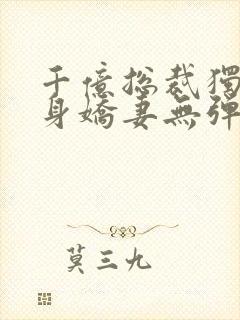 千億总裁獨
身嬌妻無彈
莫三九